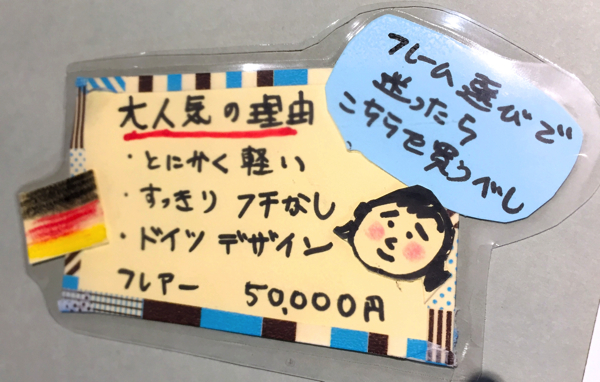 大人気の理由
・とにかく軽い
・すっきりフチなし
・ドイツデザイン
フレアー 50,000円
フレーム選びで
迷ったら
こちらで買うべし